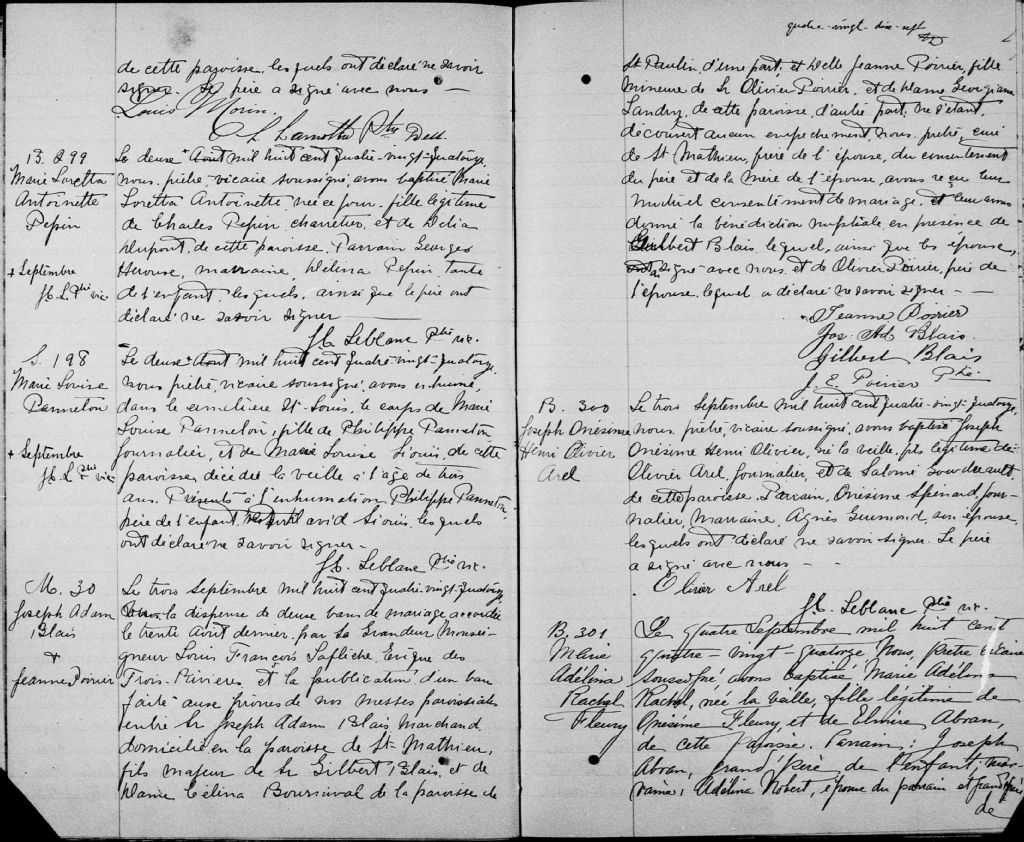 de cette paroisse, lesquels ont déclaré ne savoir
signer. Le père a signé avec nous —
Louis Morin
Ptre
B. 299
Marie Loretta
Antoinette
Pepin
+ Septembre
J.L. Ptre vic.
Le deux + Août mil huit cent quatre-vingt-quatorze,
nous, prêtre, vicaire soussigné, avons baptisé Marie
Loretta Antoinette, née ce jour, fille légitime
de Charles Pepin, charretier, et de Délia
Dupont, de cette paroisse. Parrain Georges
Heroux, marraine, Délina Pepin, tante
de l'enfant, lesquels, ainsi que le père ont
déclaré ne savoir signer —
J.L. Leblanc Ptre vic.
S. 198
Marie Louise
Panneton
+ Septembre
J.L. Ptre vic.
Le deux + Août mil huit cent quatre-vingt-quatorze,
nous, prêtre, vicaire soussigné, avons inhumé,
dans le cimetière St-Louis, le corps de Marie
Louise Panneton, fille de Philippe Panneton
journalier, et de Marie Louise Sionis, de cette
paroisse, décédée la veille à l'âge de trois
ans. Présents à l'inhumation, Philippe Panneton,
père de l'enfant, David Sionis, lesquels
ont déclaré ne savoir signer —
J.L. Leblanc Ptre vic.
M. 30
Joseph Adam
Blais
+
Jeanne Poirier
Le trois Septembre mil huit cent quatre-vingt-quatorze,
Vu la dispense de deux bans de mariage accordée
le trente Août dernier, par Sa Grandeur Monsei-
gneur Louis François Laflèche, Evêque des
Trois-Rivières, et la publication d'un ban
faite aux prônes de nos messes paroissiales
entre Sr Joseph Adam Blais, Marchand
domicilié en la paroisse de St-Mathieu,
fils majeur de Sr Gilbert Blais et de
Dame Célina Bournival de la paroisse de
quatre-vingt-dix-sept
St Paulin, d'une part, et Delle Jeanne Poirier, fille
mineure de Sr Olivier Poirier, et de Dame Georgiana
Landry, de cette paroisse, d'autre part, ne s'étant
découvert aucun empêchement, nous, prêtre, curé
de St Mathieu, frère de l'épouse, du consentement
du père et de la mère de l'épouse, avons reçu leur
mutuel consentement de mariage, et leur avons
donné la bénédiction nuptiale en présence de
Gilbert Blais, lequel, ainsi que les époux,
signé avec nous, et de Olivier Poirier, père de
l'épouse, lequel a déclaré ne savoir signer —
Jeanne Poirier
Jos. Ad. Blais
Gilbert Blais
J. E. Poirier Ptre
B. 300
Joseph Onésime
Henri Olivier
Arel
Le trois Septembre mil huit cent quatre-vingt-quatorze,
nous, prêtre, vicaire soussigné, avons baptisé Joseph
Onésime Henri Olivier, né la veille, fils légitime de
Olivier Arel, journalier, et de Salomé Boudreault,
de cette paroisse. Parrain, Onésime Spénard, jour-
nalier, Marraine, Agnès Guimond, son épouse,
lesquels ont déclaré ne savoir signer. Le père
a signé avec nous —
Olivier Arel
J.L. Leblanc Ptre vic.
B. 301
Marie
Adélina
Rachel
Fleury
Le quatre Septembre mil huit cent
quatre-vingt-quatorze Nous, Prêtre vicaire
soussigné avons baptisé Marie Adélina
Rachel, née la veille, fille légitime de
Onésime Fleury, et de Elmire Abran,
de cette Paroisse. Parrain: Joseph
Abran, grand'père de l'enfant; mar-
raine: Adélina Robert, épouse du parrain et grand'mère
de